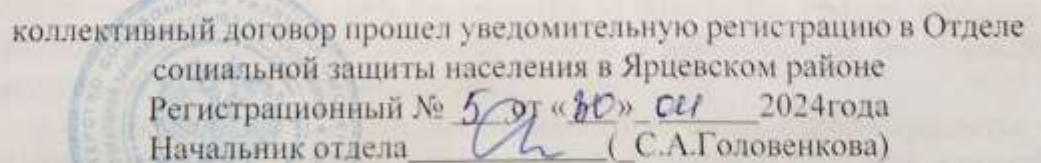 коллективный договор прошел уведомительную регистрацию в Отделе
социальной защиты населения в Ярцевском районе
Регистрационный № 5 от «30» 2024года
Начальник отдела (С.А.Головенкова)